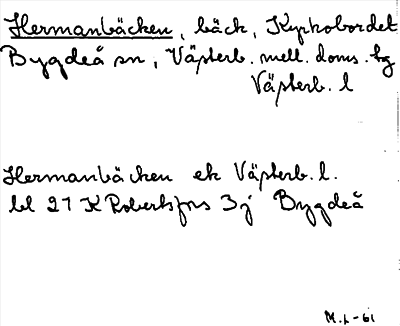 Hermanbäcken, bäck, Kyrkobordet
Bygdeå sn, Västerb. mell. doms. tg
Västerb. l
Hermanbäcken ek Västerb. l.
bl 21 K Robertsfors 3j Bygdeå
M.p-61